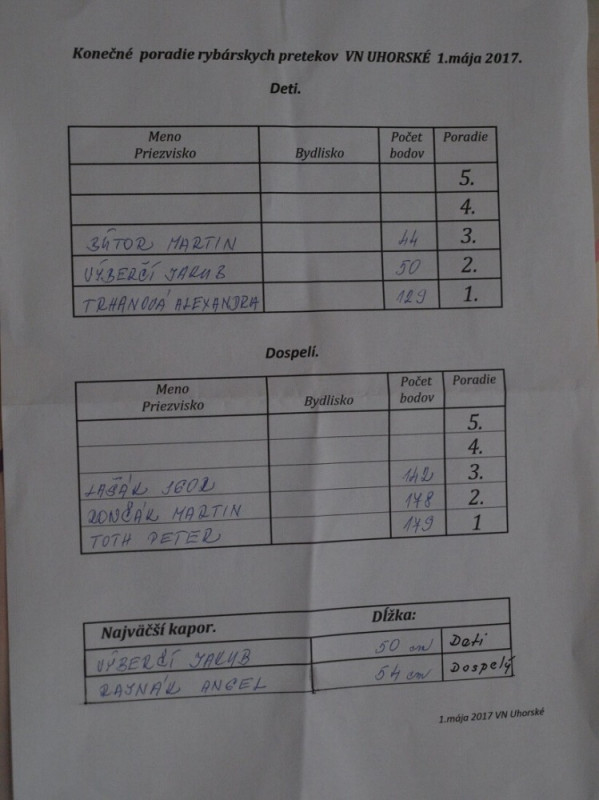 Konečné poradie rybárskych pretekov VN UHORSKÉ 1.mája 2017.
Deti.
Meno Priezvisko Bydlisko Počet bodov Poradie
5.
4.
BÚTOR MARTIN 44 3.
VÝBERČÍ JAKUB 50 2.
TRHANOVÁ ALEXANDRA 129 1.
Dospelí.
Meno Priezvisko Bydlisko Počet bodov Poradie
5.
4.
IGOR 142 3.
RONČÁK MARTIN 178 2.
TOTH PETER 179 1
Najväčší kapor. Dĺžka:
VÝBERČÍ JAKUB 50 cm Deti
RAJNÁK ANGEL 54 cm Dospelý
1.mája 2017 VN Uhorské